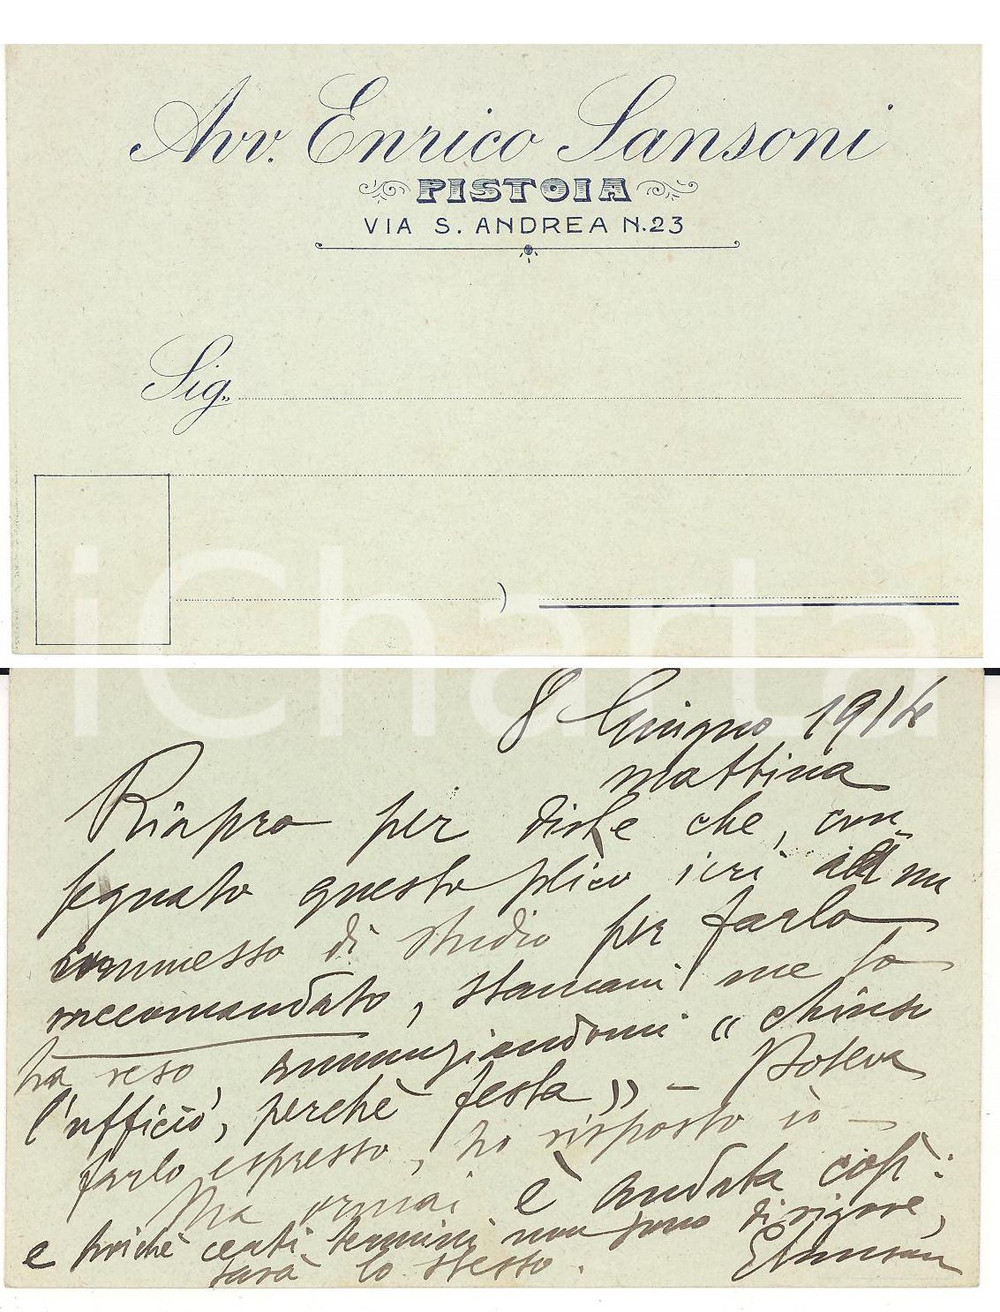 Avv. Enrico Sansoni
PISTOIA
VIA S. ANDREA N. 23
Sig.
)
iCharta
8 Giugno 1914
mattina
Riapro per dirle che, con-
segnato questo plico ieri al mio
commesso di studio per farlo
raccomandato, stamani me lo
ha reso, annunziandomi "chiuso
l'ufficio, perchè festa" - Poteva
farlo espresso, ho risposto io -
Ma ormai è andata così:
e poichè certi termini non sono di rigore,
sarà lo stesso.
ESansoni